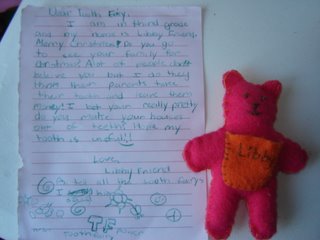 Dear Tooth Fairy,
I am in third grade
and my name is Libby Friend.
Merry Christmas! Do you go
to see your family for
Christmas? Alot of people don't
believe you but I do they
think their parents take
their tooth and leave them
money! I bet your really pretty
do you make your houses
out of teeth? I hope my
tooth is useful!
Love,
Libby Friend
tell all you tooth fairy
I
TF
Tooth Fairy Power
Libby